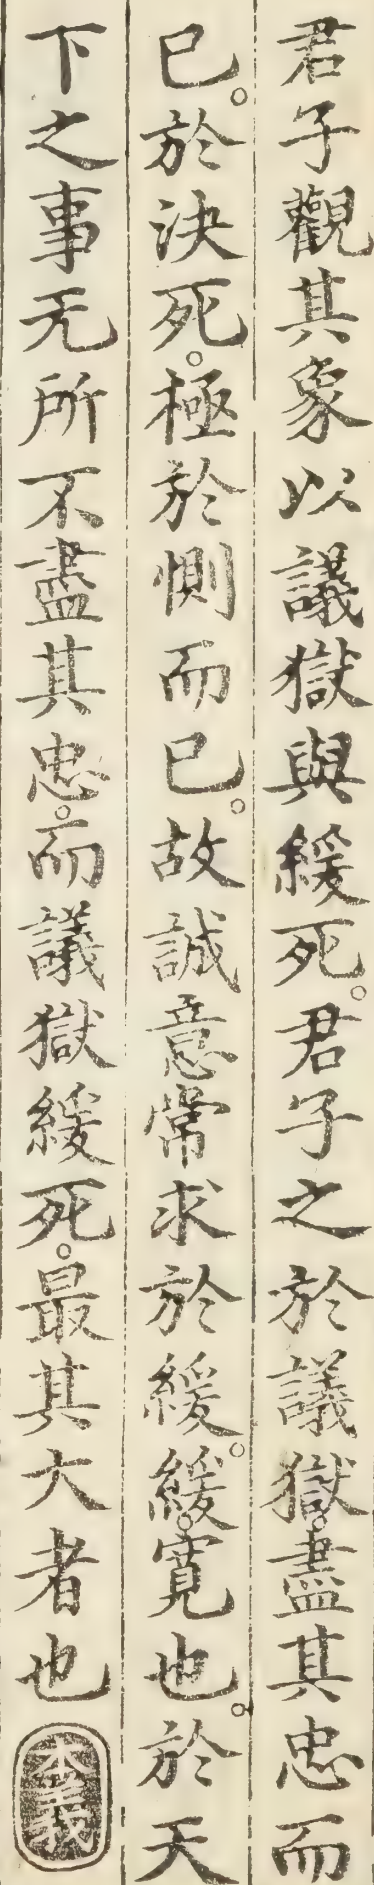 君子觀其象以議獄與緩死。君子之於議獄。盡其忠而
已。於決死。極於惻而已。故誠意常求於緩。緩。寬也。於天
下之事无所不盡其忠。而議獄緩死。最其大者也 本義